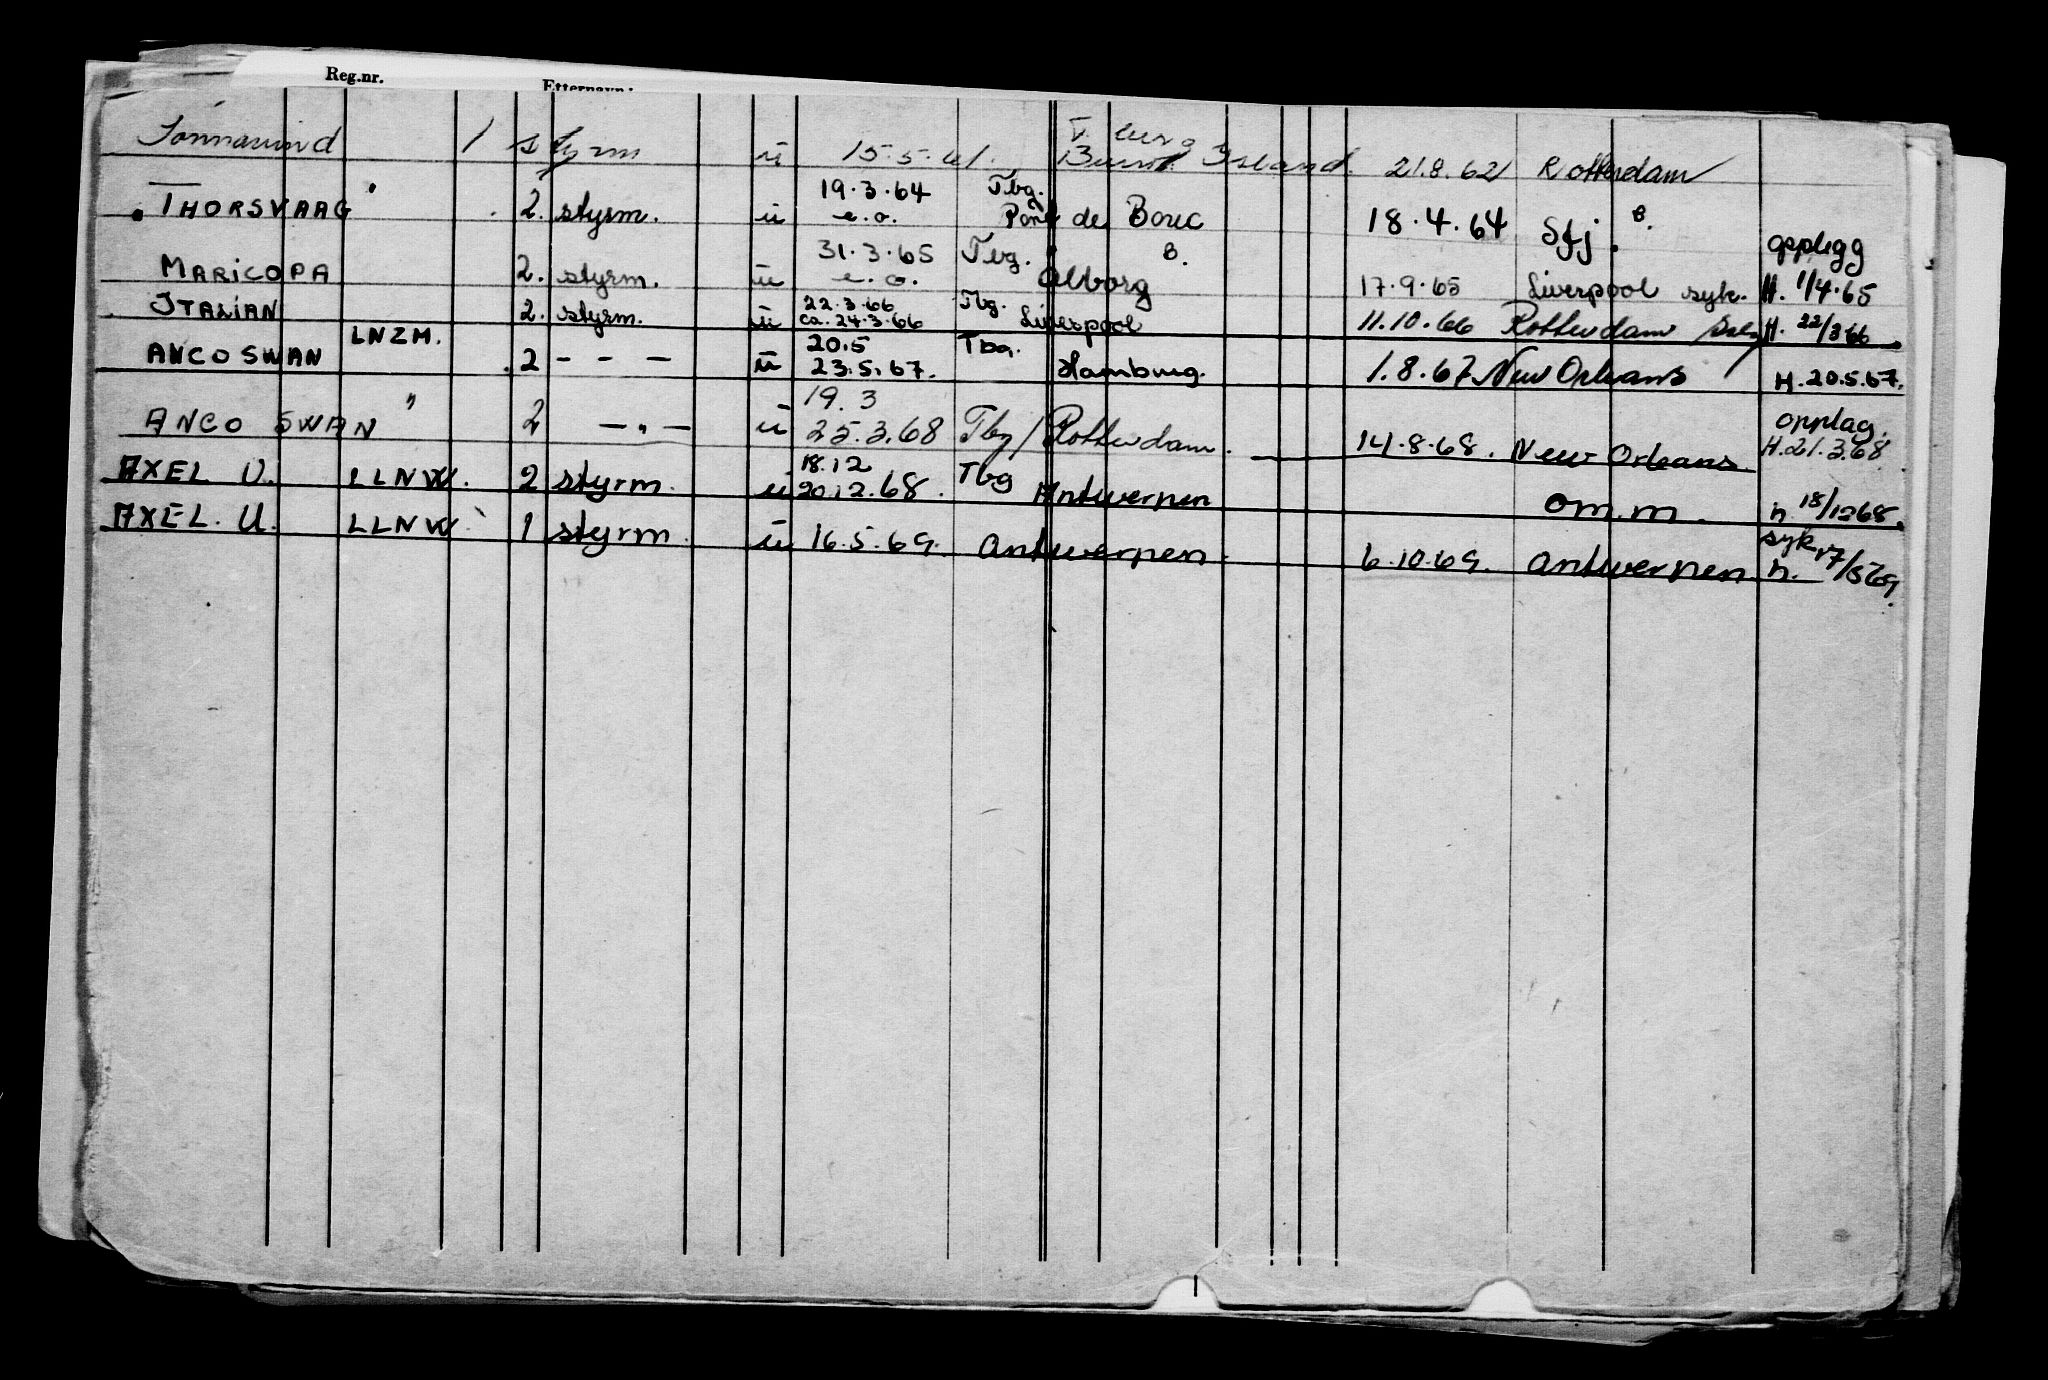 Reg.nr. Etternavn:
1 styrm ü 15.5.61. Island. 21.8.62 Rotterdam
THORSVAAG " 2. styrm. ü 19.3.64 e.o. Tbg. Port de Bouc 18.4.64 Sfj. B.
MARICOPA 2. styrm. ü 31.3.65 e.o. Tbg. B. Alborg 17.9.65 Liverpool syk. opplegg H. 1/4.65
ITALIAN 2. styrm. ü 22.3.66 ca. 24.3.66 Tbg. Liverpool 11.10.66 Rotterdam H. 22/3 66.
ANCO SWAN LNZM. 2 - - - ü 20.5 23.5.67. Tbg. Hamburg. 1.8.67 New Orleans H. 20.5.67.
ANCO SWAN " 2 -"- ü 19.3 25.3.68 Tbg/Rotterdam. 14.8.68. New Orleans. opplag. H.21.3.68.
AXEL U. LLNW. 2 styrm. ü 18.12 20.12.68. Tbg Antwerpen om.m. h 18/12 68.
AXEL. U. LLNW. 1 styrm. ü 16.5.69. Antwerpen. 6.10.69. Antwerpen syk h. 17/5 69.